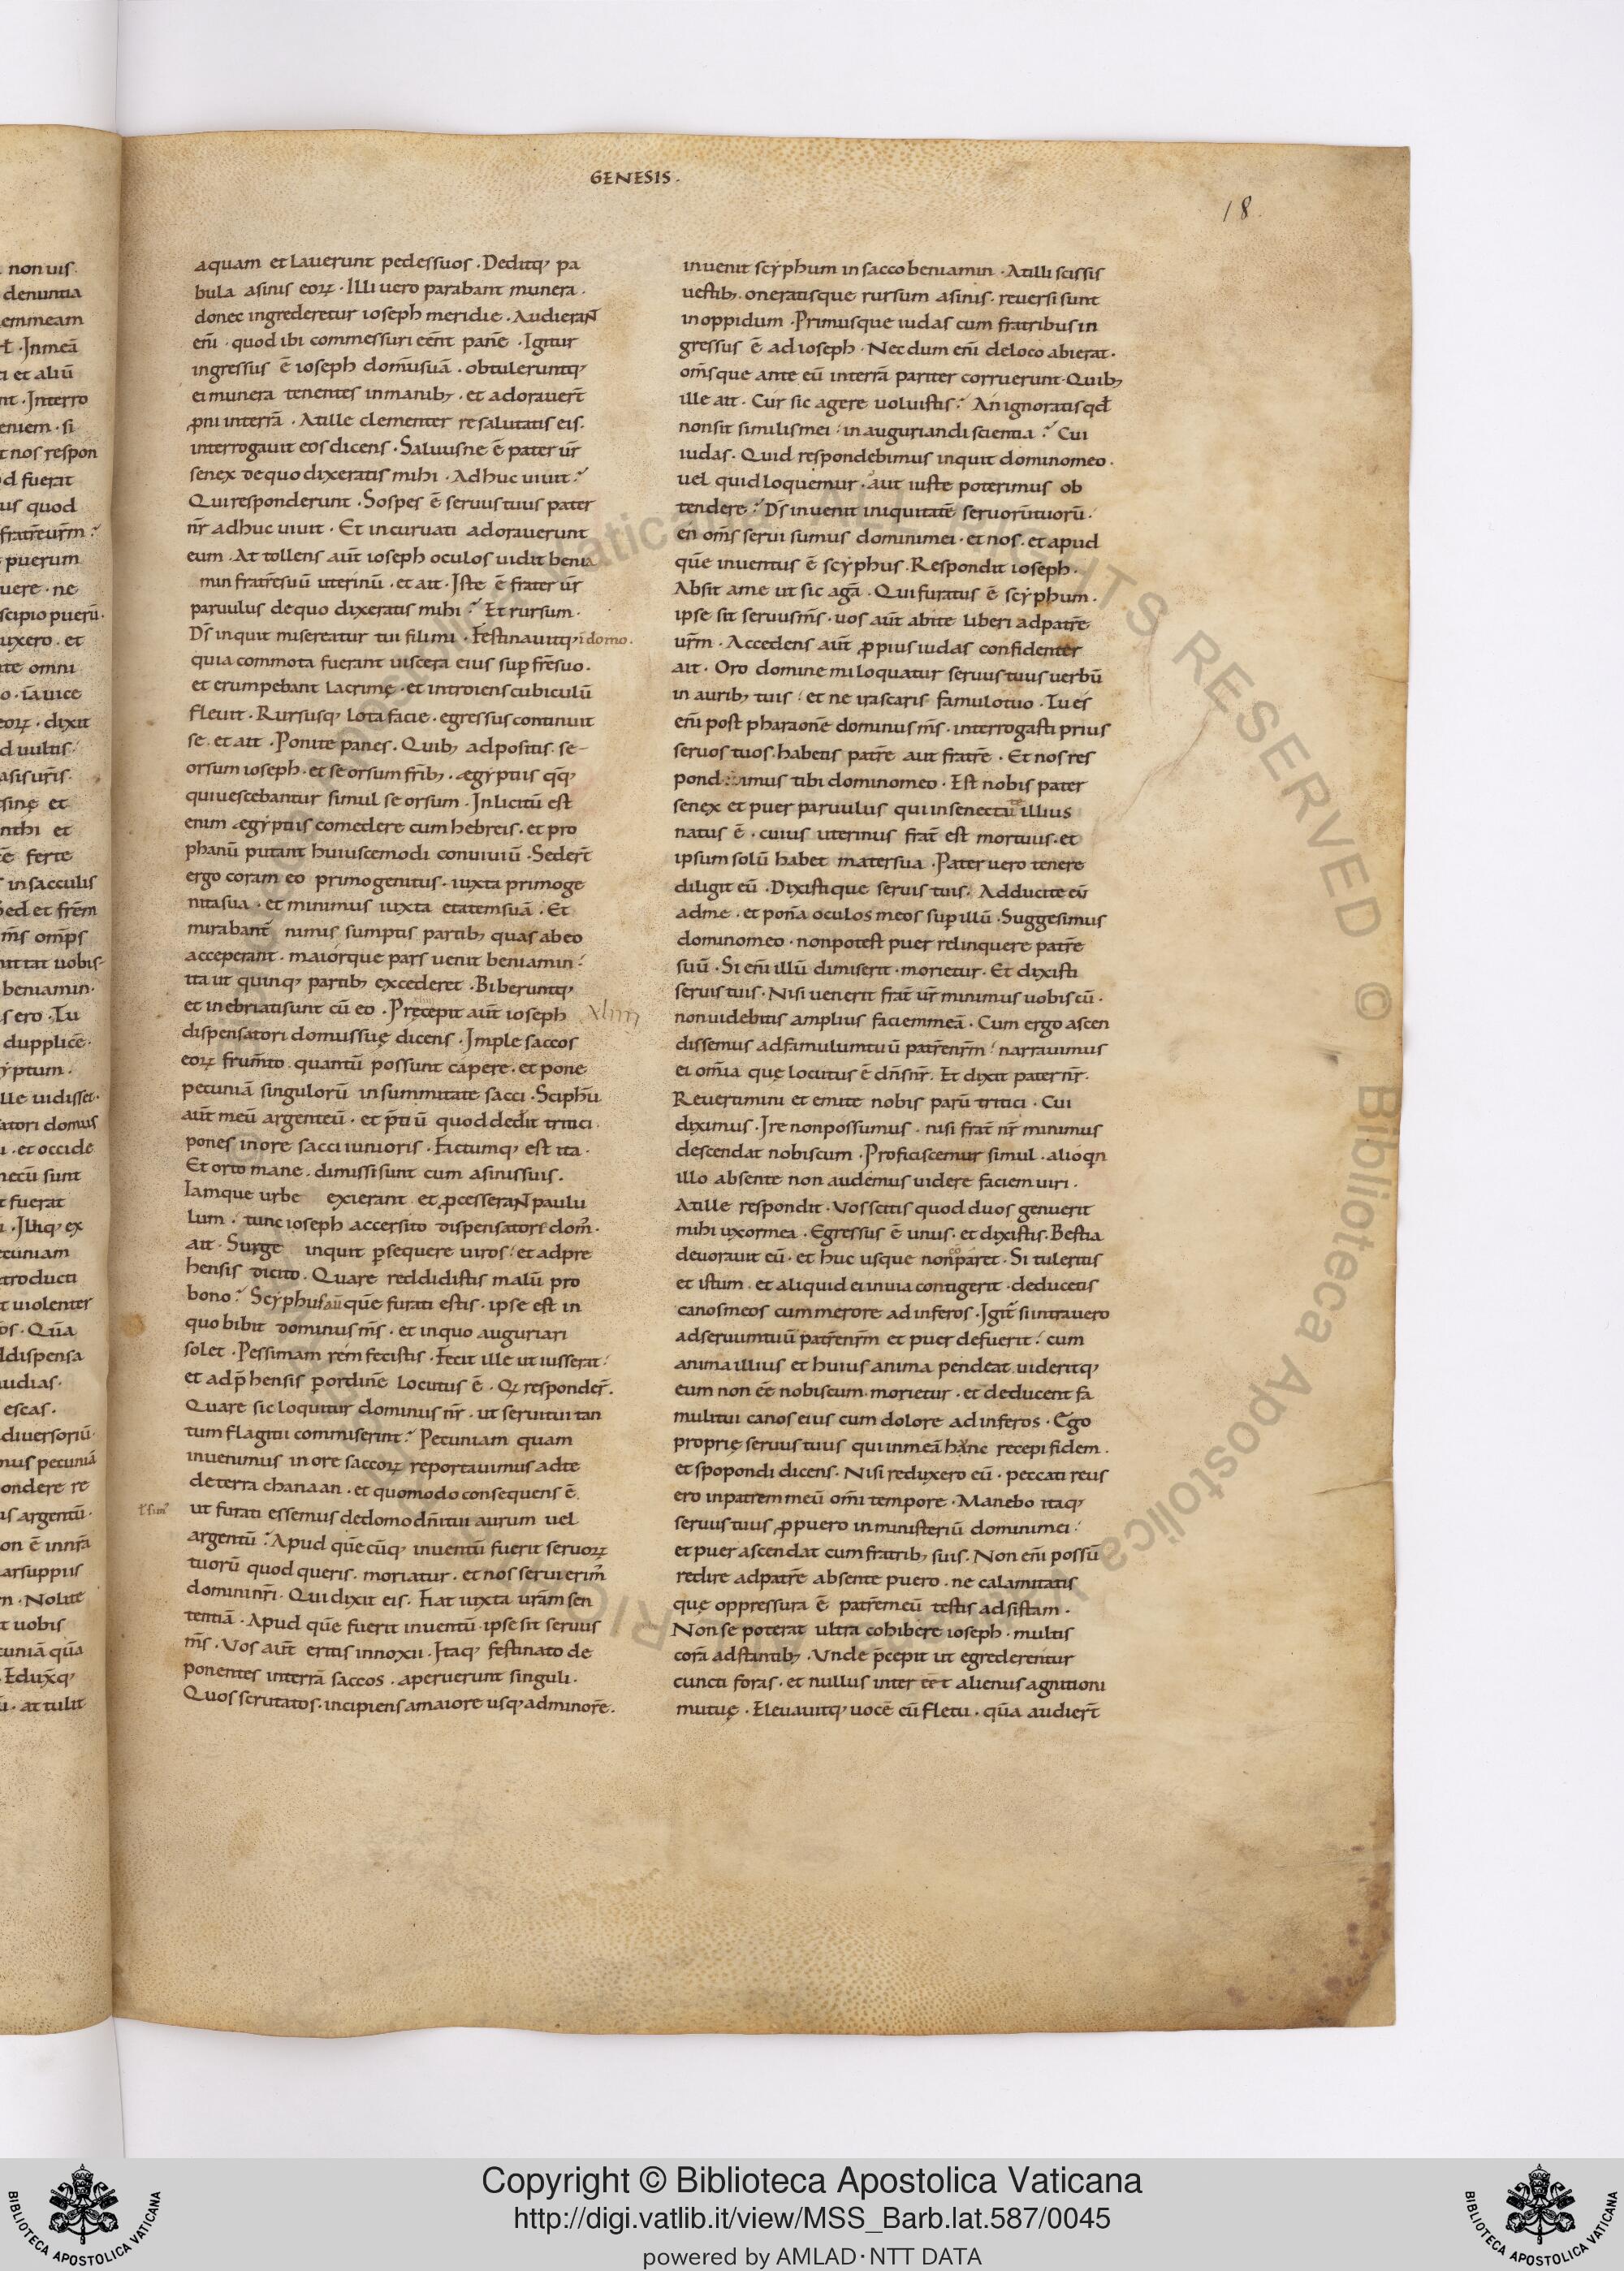 GENESIS.
18
non uis.
denuntia
emmeam
Inmeā
et aliū
Interro
eniem · si
nos respon
d fuerit
us quod
fratrēurm̄?
puerum
uere · ne
scipio puerū·
uxero · et
te omni
o · īa uice
eoꝝ · dixit
d uultis
asisur̄is·
sinę et
nthi et
ferte
insacculis
sed et fr̄em
m̄s om̄ps
mittat uobis·
beniamin·
s ero · Tu
dupplicē·
yptum·
lle uidisset·
atori domus
· et occide
mecū sunt
t fuerat
· Illiq; ex
ecuniam
troducti
t uiolenter
os · Qūa
dispensa
uidias·
escas·
diuersoriū·
mus pecuniā
ondere re
is argentū·
on ē innr̄a
arsuppiis
n · Nolite
t uobis
cuniā qūa
Eduxq;
· attulit
aquam et lauerunt pedessuos · Deditq; pa
bula asinis eoꝝ · Illi uero parabant munera ·
donec ingrederetur ioseph meridie · Audierant
enī · quod ibi commessuri eēnt panē · Igitur
ingressus ē ioseph domūsuā · obtuleruntq;
ei munera tenentes inmanib; · et adorauer̄t
ꝓni interrā · Atille clementer resalutatis eis·
interrogauit eos dicens · Saluusne ē pater ur̄
senex dequo dixeratis mihi · Adhuc uiuit?
Qui responderunt · Sospes ē seruustuus pater
nr̄ adhuc uiuit · Et incuruati adorauerunt
eum · At tollens aūt ioseph oculos uidit benia
min fratrēsuū uterinū · et ait · Iste ē frater ur̄
paruulus dequo dixeratis mihi? Et rursum·
Ds̄ inquit misereatur tui fili mi · Festinauitq; ī domo·
quia commota fuerant uiscera eius sup̄ fr̄esuo·
et erumpebant lacrimę · et introiens cubiculū
fleuit · Rursusq; lota facie · egressus continuit
se · et ait · Ponite panes · Quib; adpositis se-
orsum ioseph · et seorsum fr̄ib; · ægyptiis q̄q;
qui uescebantur simul seorsum · Inlicitū est
enim ægyptiis comedere cum hebreis · et pro
phanū putant huiuscemodi conuiuiū · Seder̄t
ergo coram eo primogenitus · iuxta primoge
nitasua · et minimus iuxta etatemsuā · Et
mirabant̄ nimis sumptis partib; quas abeo
acceperant · maiorque pars uenit beniamin·
ita ut quinq; partib; excederet · Biberuntq;
et inebriatisunt cū eo · Precepit aūt ioseph xliiii
dispensatori domussuę dicens · Imple saccos
eoꝝ frum̄to · quantū possunt capere · et pone
pecuniā singulorū insummitate sacci · Sciphū
aūt meū argenteū · et p̄tiū quod dedit tritici·
pones inore sacci iunioris · Factumq; est ita·
Et orto mane · dimissisunt cum asinissuis·
Iamque urbe exierant et ꝓcesserant paulu
lum · tunc ioseph accersito dispensatore dom̄·
ait · Surge inquit p̱sequere uiros · et adpre
hensis dicito · Quare reddidistis malū pro
bono? Scyphus aū quē furati estis · ipse est in
quo bibit dominus m̄s · et inquo auguriari
solet · Pessimam rem fecistis · Fecit ille ut iusserat·
et adp̄hensis p̱ordinē locutus ē · Qꝝ responder̄·
Quare sic loquitur dominus nr̄ · ut seruitui tan
tum flagitii commiserint? Pecuniam quam
inuenimus inore saccoꝝ reportauimus adte
deterra chanaan · et quomodo consequens ē
ut furati essemus dedomo dn̄itui aurum uel
argentū? Apud quēcūq; inuentū fuerit seruoꝝ
tuorū quod queris · moriatur · et nos serui erim̄
domininr̄i · Qui dixit eis · Fiat iuxta urām sen
tentiā · Apud quē fuerit inuentū · ipse sit seruus
m̄s · Uos aūt eritis innoxii · Itaq; festinato de
ponentes interrā saccos · aperuerunt singuli·
Quos scrutatos · incipiens amaiore usq; adminorē·
inuenit scyphum in sacco beniamin · Atilli scissis
uestib; · oneratisque rursum asinis · reuersi sunt
inoppidum · Primusque iudas cum fratribus in
gressus ē ad ioseph · Necdum enī deloco abierat·
om̄sque ante eū interrā pariter corruerunt · Quib;
ille ait · Cur sic agere uoluistis? An ignoratis qd̄
nonsit similis mei · in auguriandi scientia? Cui
iudas · Quid respondebimus inquit dominomeo·
uel quid loquemur · aut iuste poterimus ob
tendere? Ds̄ inuenit iniquitatē seruorūtuorū·
en om̄s serui sumus dominimei · et nos · et apud
quē inuentus ē scyphus · Respondit ioseph·
Absit ame ut sic agā · Qui furatus ē scyphum·
ipse sit seruusm̄s · uos aūt abite liberi adpatrē
ur̄m · Accedens aūt ꝓpius iudas confidenter
ait · Oro domine mi loquatur seruus tuus uerbū
in aurib; tuis · et ne irascaris famulotuo · Tu es
enī post pharaonē dominus m̄s · interrogasti prius
seruos tuos · habetis patrē aut fratrē · Et nos res
pond imus tibi dominomeo · Est nobis pater
senex et puer paruulus qui insenectute illius
natus ē · cuius uterinus frat̄ est mortuus · et
ipsum solū habet matersua · Pater uero tenere
diligit eū · Dixistique seruis tuis · Adducite eū
adme · et ponā oculos meos sup̱illū · Suggesimus
dominomeo · nonpotest puer relinquere patrē
suū · Si enī illū dimiserit · morietur · Et dixisti
seruis tuis · Nisi uenerit frat̄ ur̄ minimus uobis cū·
nonuidebitis amplius faciemmeā · Cum ergo ascen
dissemus adfamulumtuū patrēnr̄m · narrauimus
ei om̄ia quę locutus ē dn̄snr̄ · Et dixit pater nr̄·
Reuertimini et emite nobis parū tritici · Cui
diximus · Ire nonpossumus · nisi frat̄ nr̄ minimus
descendat nobiscum · Proficiscemur simul · alioqn
illo absente non audemus uidere faciem uiri·
Atille respondit · Uos scitis quod duos genuerit
mihi uxormea · Egressus ē unus · et dixistis · Bestia
deuorauit eū · et huc usque non cōparet · Si tuleritis
et istum · et aliquid ei inuia contigerit · deducetis
canosmeos cummerore adinferos · Igit̄ si intrauero
adseruumtuū patrēnr̄m et puer defuerit · cum
anima illius et huius anima pendeat · uideritq;
eum non eē nobiscum · morietur · et deducent fa
mulitui canos eius cum dolore adinferos · Ego
proprię seruus tuus qui inmeā hanc recepi fidem·
et spopondi dicens · Nisi reduxero eū · peccati reus
ero inpatrem meū om̄i tempore · Manebo itaq;
seruus tuus ꝓpuero inministeriū dominimei·
et puer ascendat cum fratrib; suis · Non enī possū
redire adpatrē absente puero · ne calamitatis
quę oppressura ē patrēmeū testis adsistam·
Non se poterat ultra cohibere ioseph · multis
corā adstantib; · Unde p̄cepit ut egrederentur
cuncti foras · et nullus inter eēt alienus agnitioni
mutuę · Eleuauitq; uocē cū fletu · qūa audier̄t
Copyright © Biblioteca Apostolica Vaticana
http://digi.vatlib.it/view/MSS_Barb.lat.587/0045
powered by AMLAD·NTT DATA
BIBLIOTECA APOSTOLICA VATICANA
BIBLIOTECA APOSTOLICA VATICANA